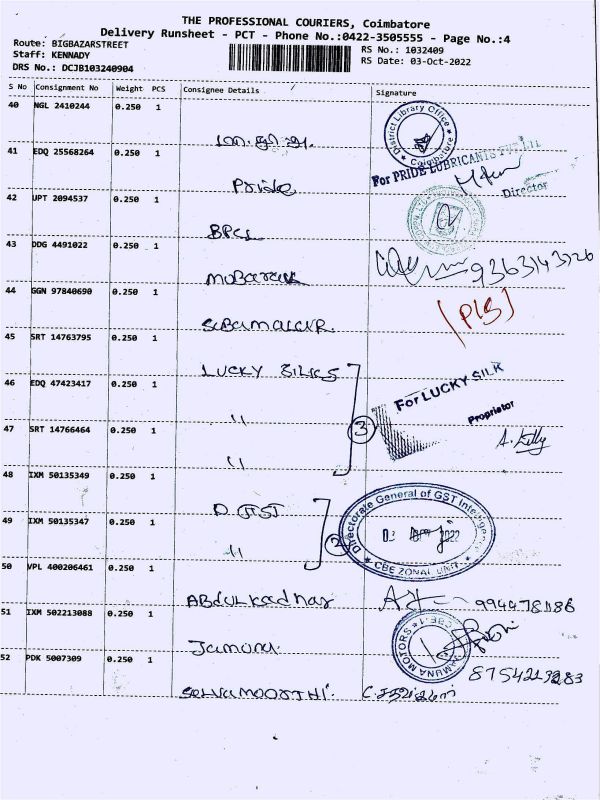 THE PROFESSIONAL COURIERS, Coimbatore
Delivery Runsheet - PCT - Phone No.:0422-3505555 - Page No.:4
Route: BIGBAZARSTREET
Staff: KENNADY
DRS No.: DCJB103240904
RS No.: 1032409
RS Date: 03-Oct-2022
S No Consignment No Weight PCS Consignee Details Signature
40 NGL 2410244 0.250 1
District Library Office
Coimbatore
41 EDQ 25568264 0.250 1 Pride
For PRIDE LUBRICANTS PVT. LTD
Director
42 UPT 2094537 0.250 1 BPCL
43 DDG 4491022 0.250 1 MOBARAK 9363143726
44 GGN 97840690 0.250 1 SUBAMALAR
45 SRT 14763795 0.250 1 LUCKY SILKS
46 EDQ 47423417 0.250 1 "
For LUCKY SILK
Proprietor
47 SRT 14766464 0.250 1 " 3
48 IXM 50135349 0.250 1 D. GST
Directorate General of GST Intelligence
CBE ZONAL UNIT
49 IXM 50135347 0.250 1 " 2
50 VPL 400206461 0.250 1 ABdulkadhar
51 IXM 502213088 0.250 1 Jamuna
JAMUNA MOTORS CBE.1
8754213283
52 PDK 5007309 0.250 1 SELVAMOORTHI.